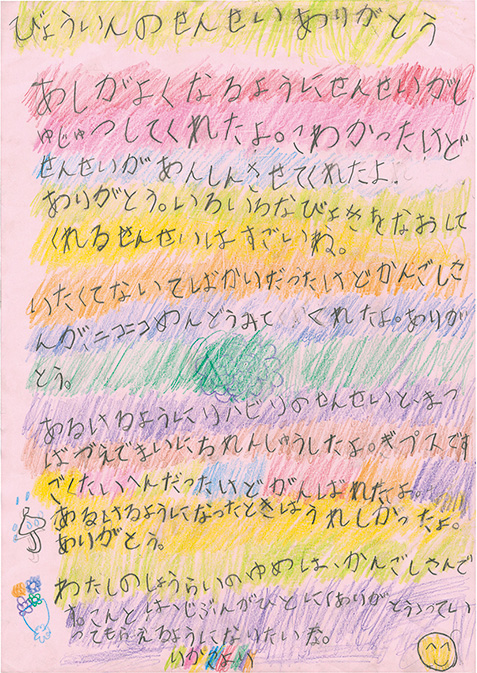 びょういんのせんせいありがとう
あしがよくなるようにせんせいがし
ゅじゅつしてくれたよ。こわかったけど
せんせいがあんしんさせてくれたよ.
ありがとう。いろいろなびょきをなおして
くれるせんせいはすごいね。
いたくてないてばかいだったけどかんごしさ
んが、ニコニコめんどうみて くれたよ。ありが
とう。
あるけるようにリハビリのせんせいと、まつ
ばづえでまいにちれんしゅうしたよ。ギプスです
ごくたいへんだったけどがんばれたよ。
あるけるようになったときはうれしかったよ。
ありがとう。
わたしのしょうらいのゆめは、かんごしさんで
す。こんどは、じぶんがひとに「ありがとう」ってい
ってもらえるようになりたいな。